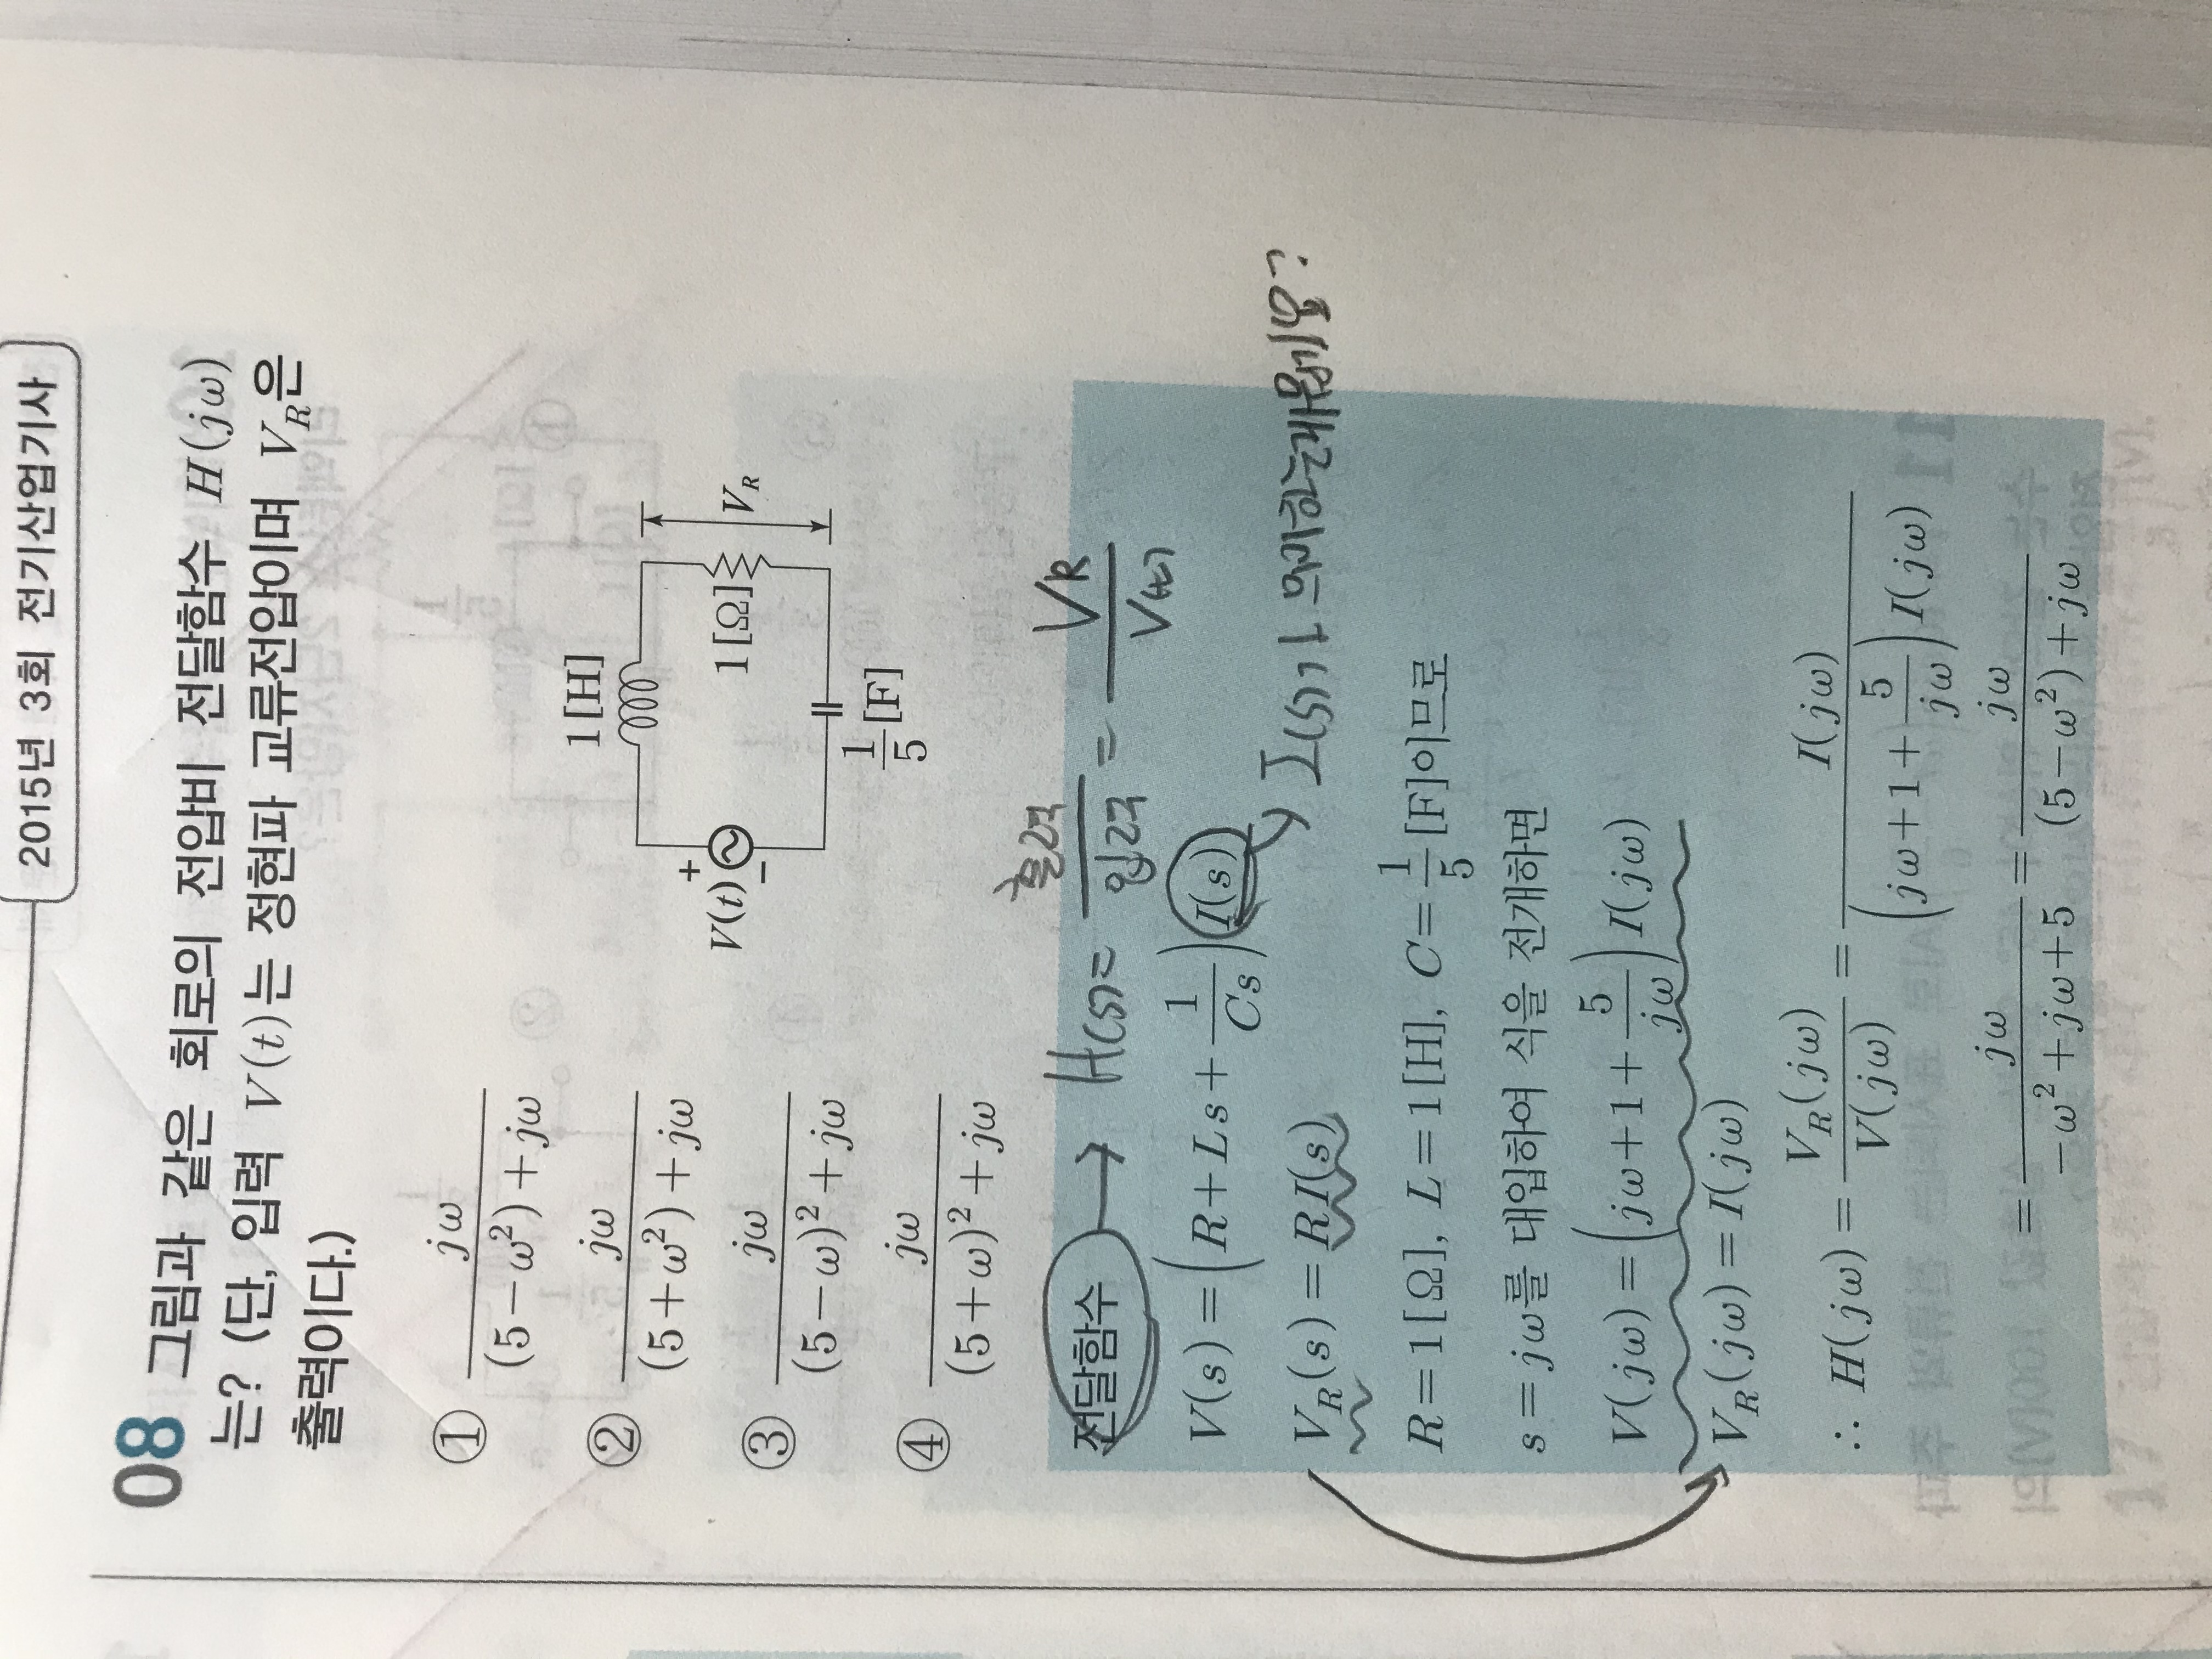 2015년 3회 전기산업기사
08 그림과 같은 회로의 전압비 전달함수 H(jω)
는? (단, 입력 V(t)는 정현파 교류전압이며 V_R은
출력이다.)
① jω/((5-ω²)+jω)
② jω/((5+ω²)+jω)
③ jω/((5-ω)²+jω)
④ jω/((5+ω)²+jω)
1[H]
V(t)
+
-
1[Ω]
V_R
1/5[F]
전달함수 → H(s) = 출력/입력 = V_R/V(t)
V(s)=(R+Ls+1/Cs)I(s)
V_R(s)=RI(s)
I(s)가 의미하는게 뭔가요?
R=1[Ω], L=1[H], C=1/5[F]이므로
s=jω를 대입하여 식을 전개하면
V(jω)=(jω+1+5/jω)I(jω)
V_R(jω)=I(jω)
∴ H(jω)=V_R(jω)/V(jω)=I(jω)/((jω+1+5/jω)I(jω))
=jω/(-ω²+jω+5)=jω/((5-ω²)+jω)